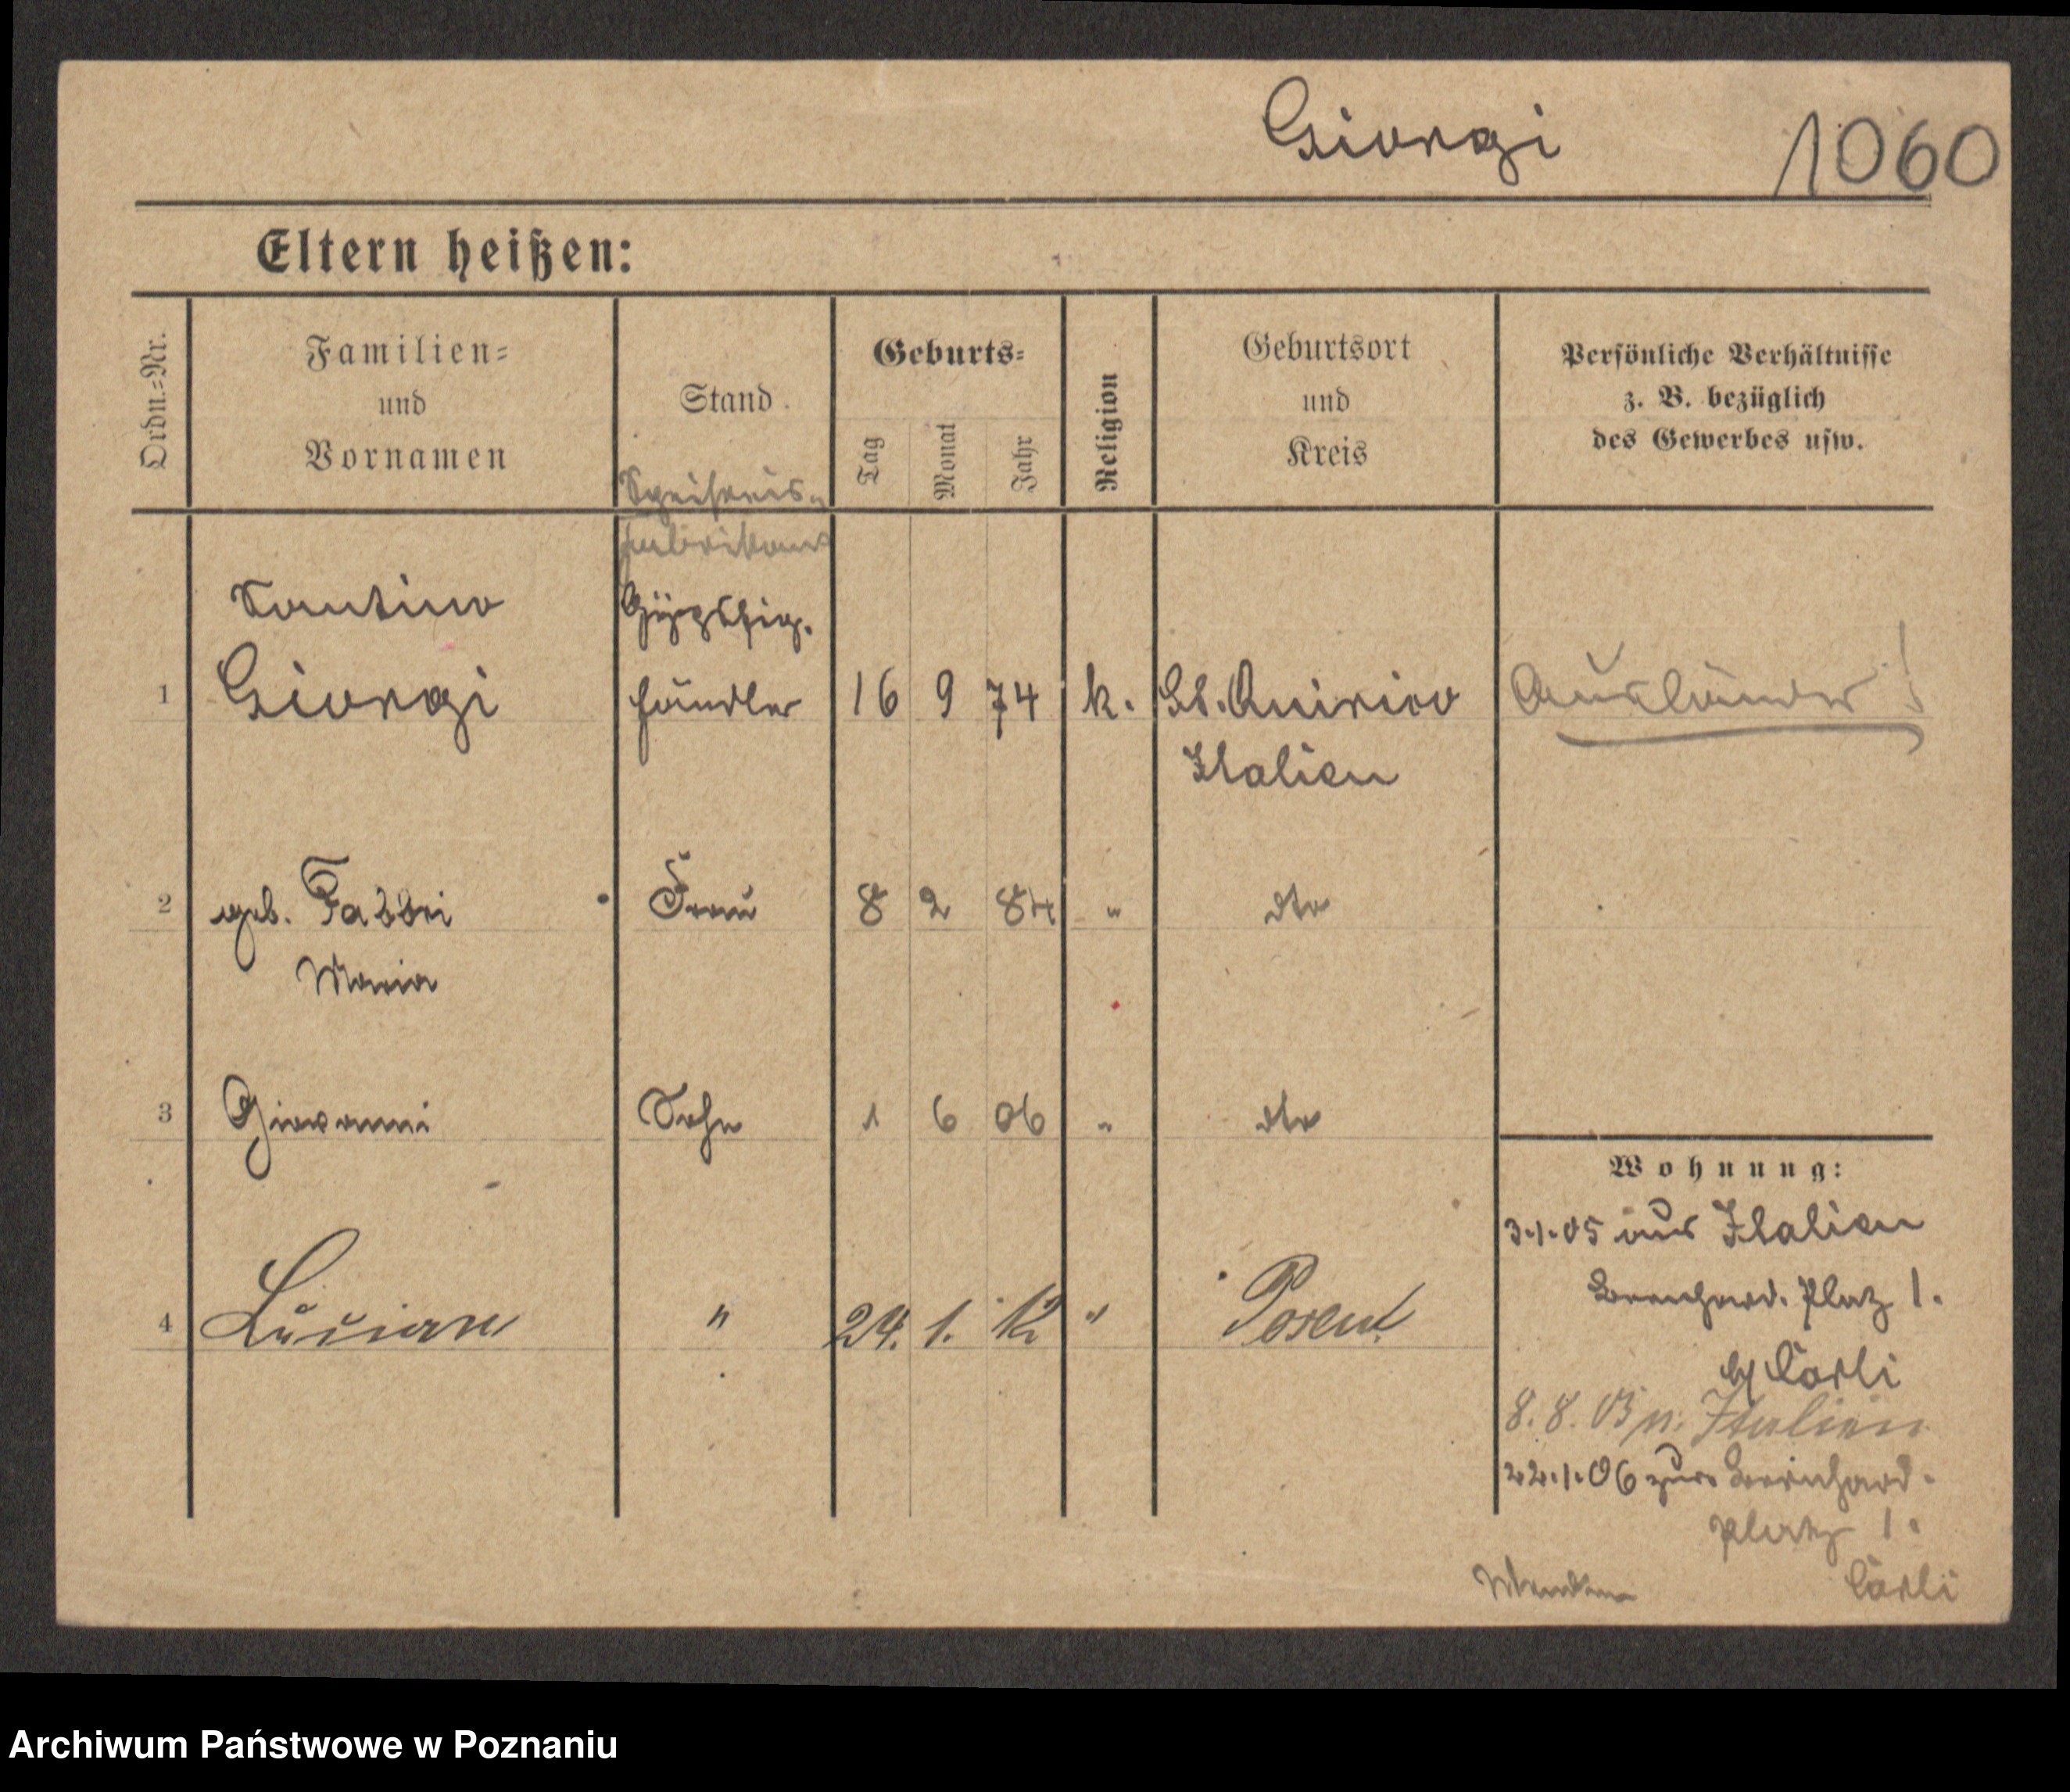 Giorgi 1060
Eltern heißen:
Ordn.=Nr.
Familien=
und
Vornamen
Stand
Geburts=
Tag
Monat
Jahr
Religion
Geburtsort
und
Kreis
Persönliche Verhältnisse
z. B. bezüglich
des Gewerbes usw.
Speiseeis-
fabrikant
Santino
Gypsfig.
1 Giorgi händler 16 9 74 k. St. Quirico Ausländer!
Italien
2 geb. Fabbri Frau 8 2 84 " dto
Maria
3 Giovanni Sohn 1 6 06 " dto
Wohnung:
3.1.05 aus Italien
Bernhard. Platz 1.
4 Lucian " 24. 1. 12 " Posen
b/ Carli
8.8. 05 n. Italien
22.1.06 zur Bernhard.
Platz 1.
Carli
Archiwum Państwowe w Poznaniu